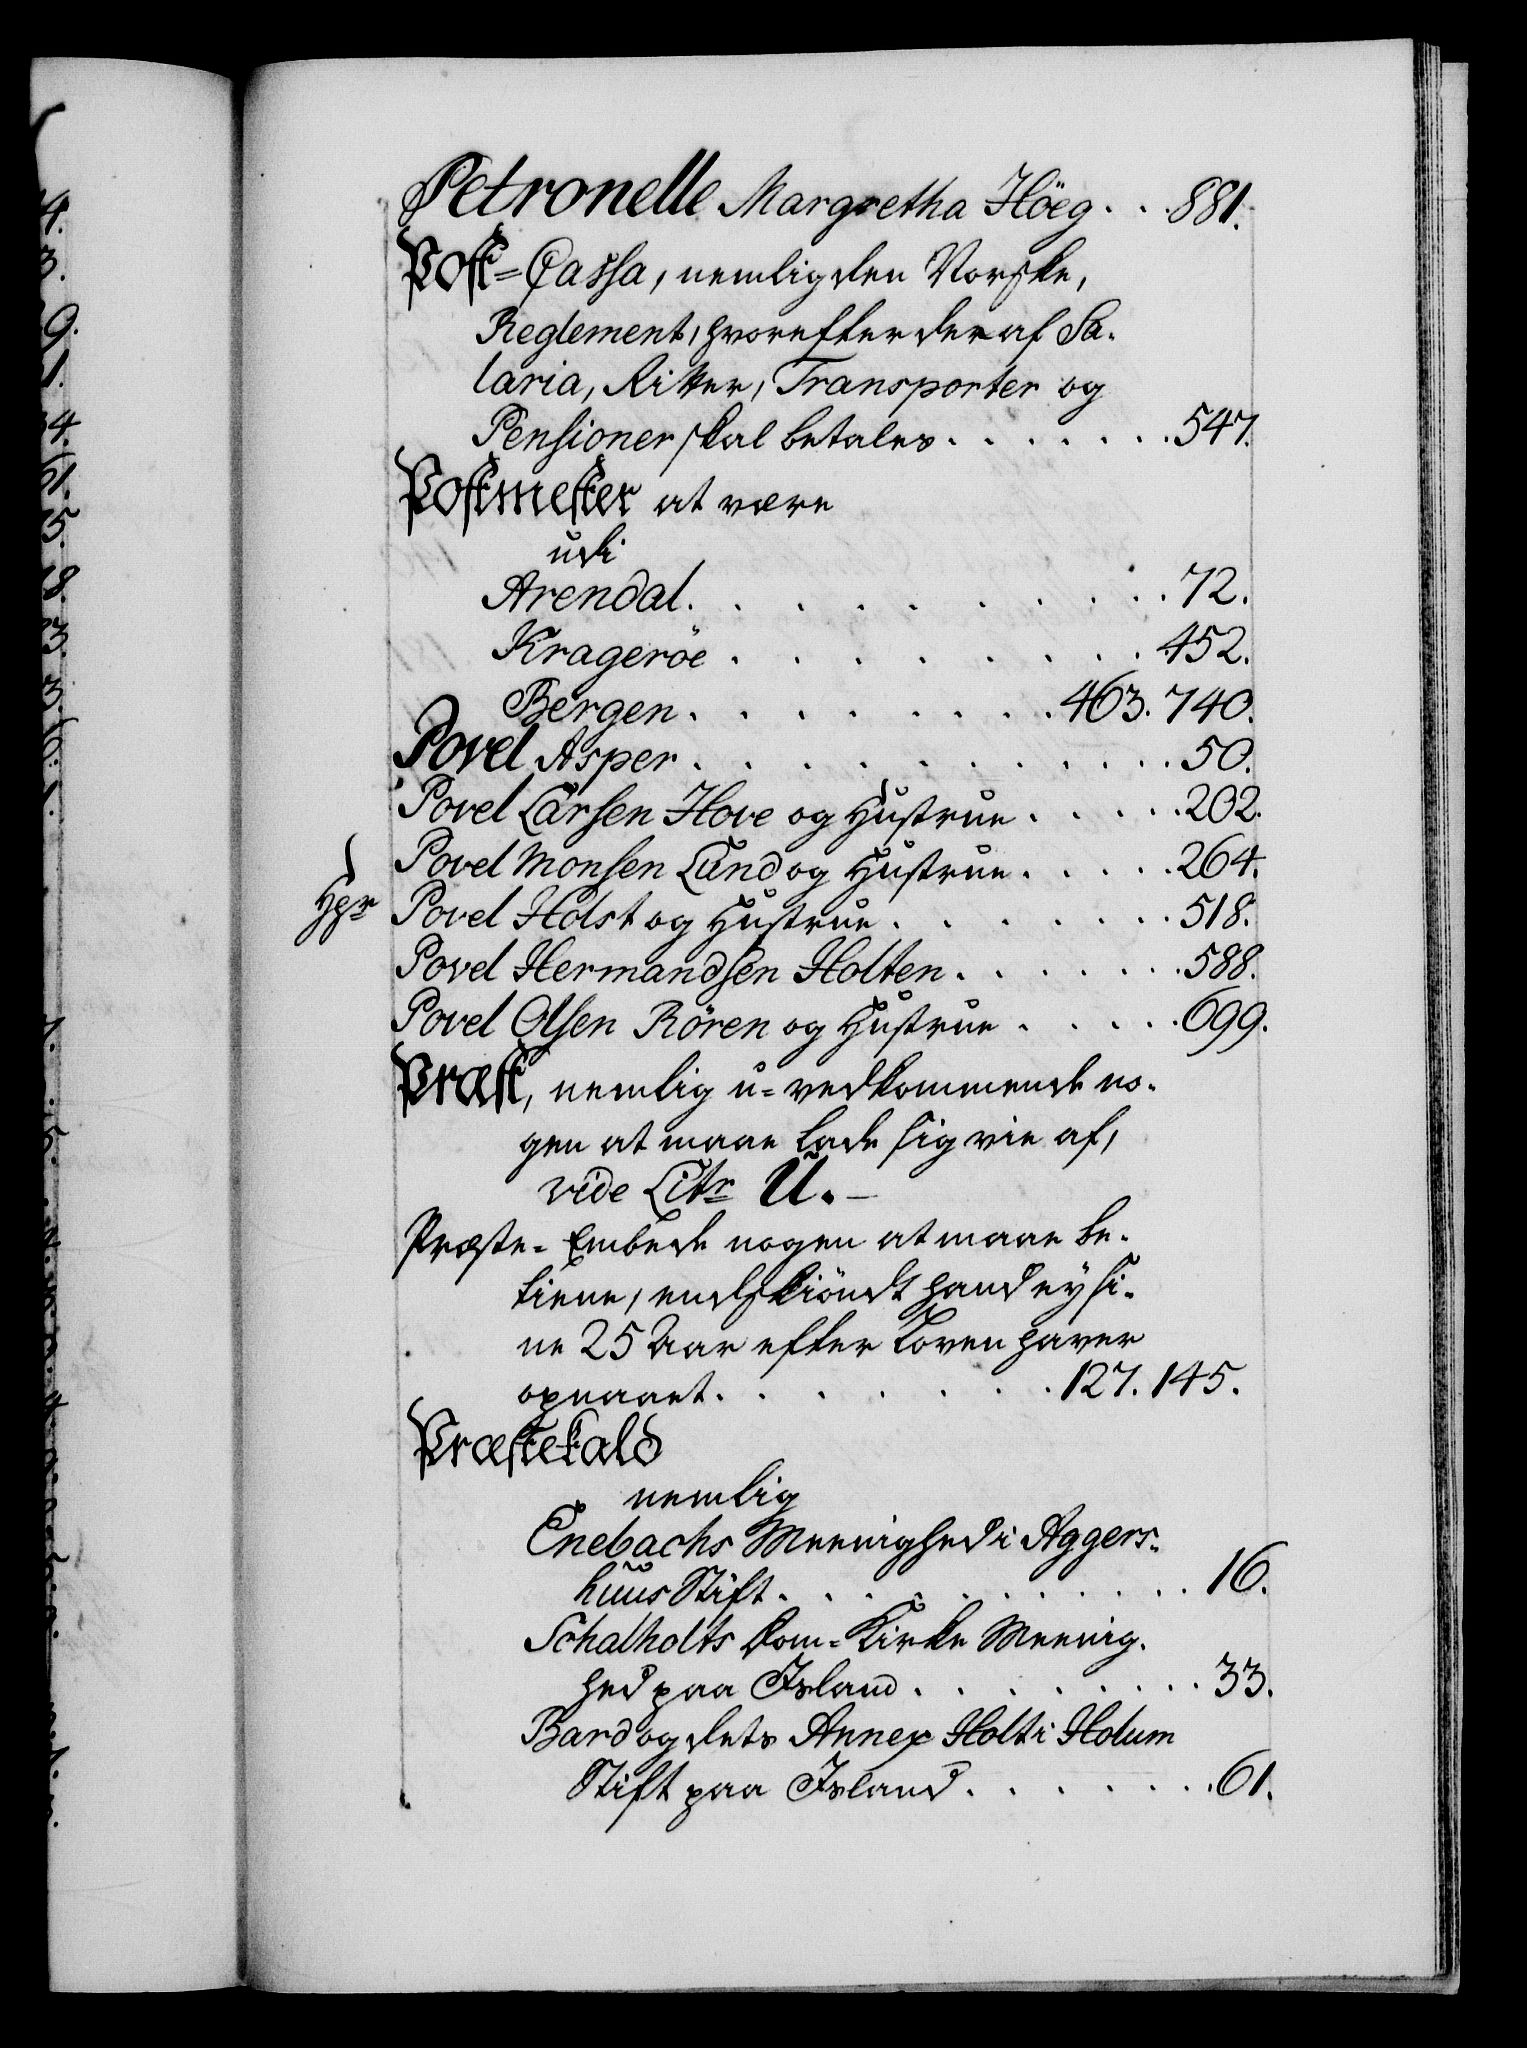 Petronelle Margretha Höeg . . . 881.
Post-Cassa, nemlig den Norske,
Reglement, hvorefter der af Sa-
laria, Ritter, Transporter og
Pensioner skal betales . . . . . . . 547.
Postmester at være
udi
Arendal . . . . . . . . . . 72.
Krageröe . . . . . . . . . 452.
Bergen . . . . . . . . 463. 740.
Povel Asper . . . . . . . . . . 50.
Povel Larsen Hove og Hustrue . . . . . 202.
Povel Monsen Lund og Hustrue . . . . . 264.
Povel Holst og Hustrue . . . . . . . 518.
Povel Hermandsen Holten . . . . . . . 588.
Povel Olsen Rören og Hustrue . . . . . 699.
Præst, nemlig u-vedkommende no-
gen at maae lade sig vie af,
vide Litr U. –
Præste-Embede nogen at maae be-
tiene, endskiöndt hand ey si-
ne 25 Aar efter Loven haver
opnaaet . . . . . . . 127. 145.
Præstekald
nemlig
Enebachs Meenighed i Aggers-
huus Stift . . . . . . . . . 16.
Schalholts Dom-Kirke Meenig-
hed paa Island . . . . . . . . 33.
Bard og dets Annex Holt i Holum
Stift paa Island . . . . . . . 61.